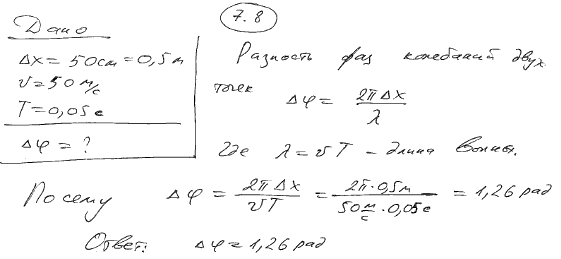 7.8
Дано
Δx = 50см = 0,5 м
v = 50 м/с
T = 0,05 с
Δφ = ?
Разность фаз колебаний двух
точек Δφ = 2πΔx / λ
Где λ = vT – длина волны.
Посему Δφ = 2πΔx / vT = 2π·0,5м / 50 м/с · 0,05 с = 1,26 рад
Ответ: Δφ = 1,26 рад